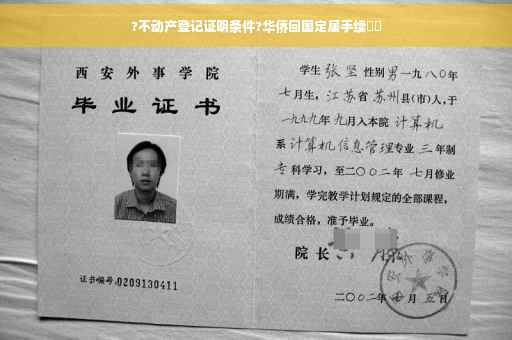 ?不动产登记证明条件?华侨回国定居手续
西安外事学院
毕业证书
证书编号:0209130411
学生 张坚 性别 男 一九八〇年
七月生, 江苏省 苏州 县(市)人,于
一九九九年 九月入本院 计算机
系 计算机信息管理 专业 三 年制
专 科学习,至二〇〇二年 七月修业
期满,学完教学计划规定的全部课程,
成绩合格,准予毕业。
院长
二〇〇二年 月 五日